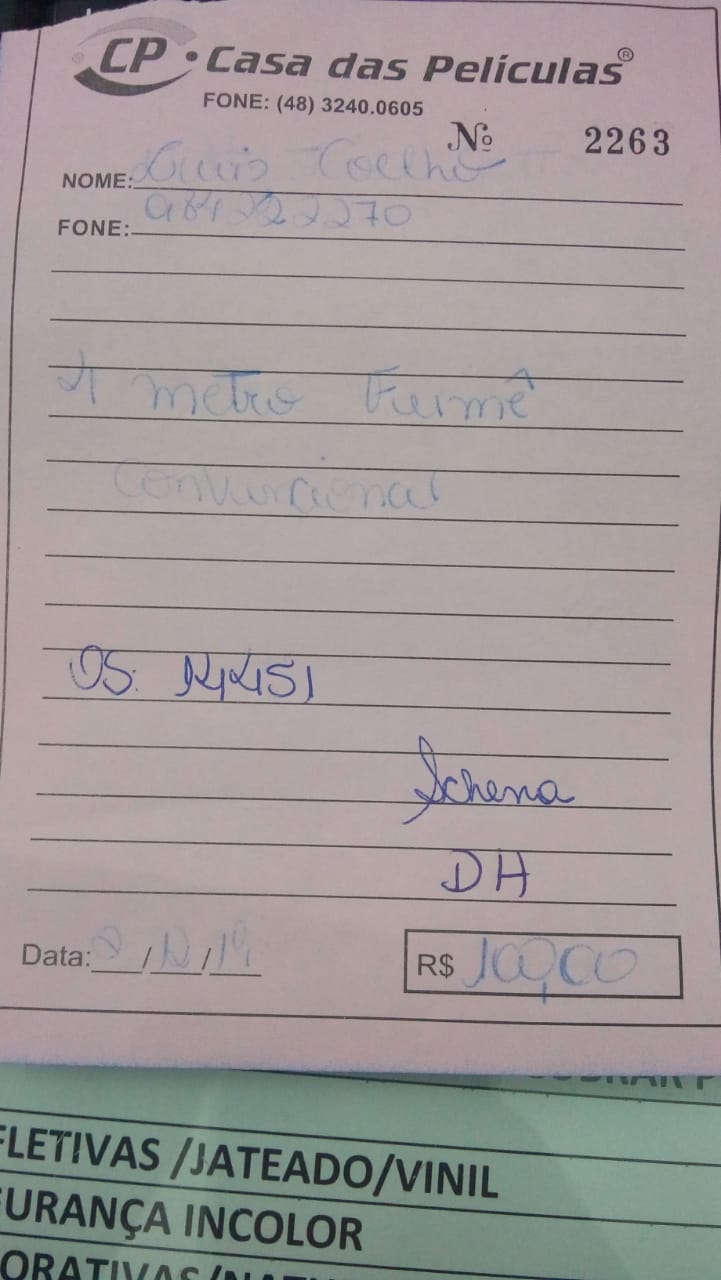 CP • Casa das Películas®
FONE: (48) 3240.0605
Nº 2263
NOME: Luis Coelho
FONE: 984222270
1 metro Fumê
Convencional
OS: 14451
Schena
DH
Data: 2/12/19
R$ 100,00
FLETIVAS /JATEADO/VINIL
URANÇA INCOLOR